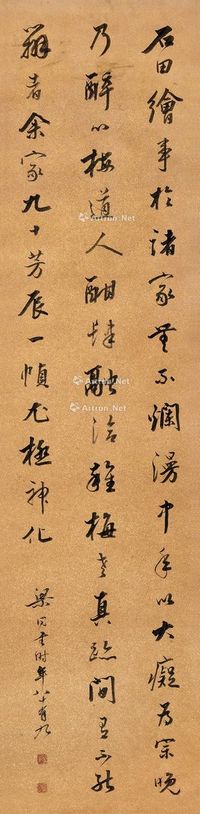 石田繪事於諸家無不爛漫中年以大癡為宗晚
乃醉心梅道人酣肆融洽雖梅老真跡間有不能
辨者余家九十芳辰一幀尤極神化
梁同書時年八十有九
Artron.Net